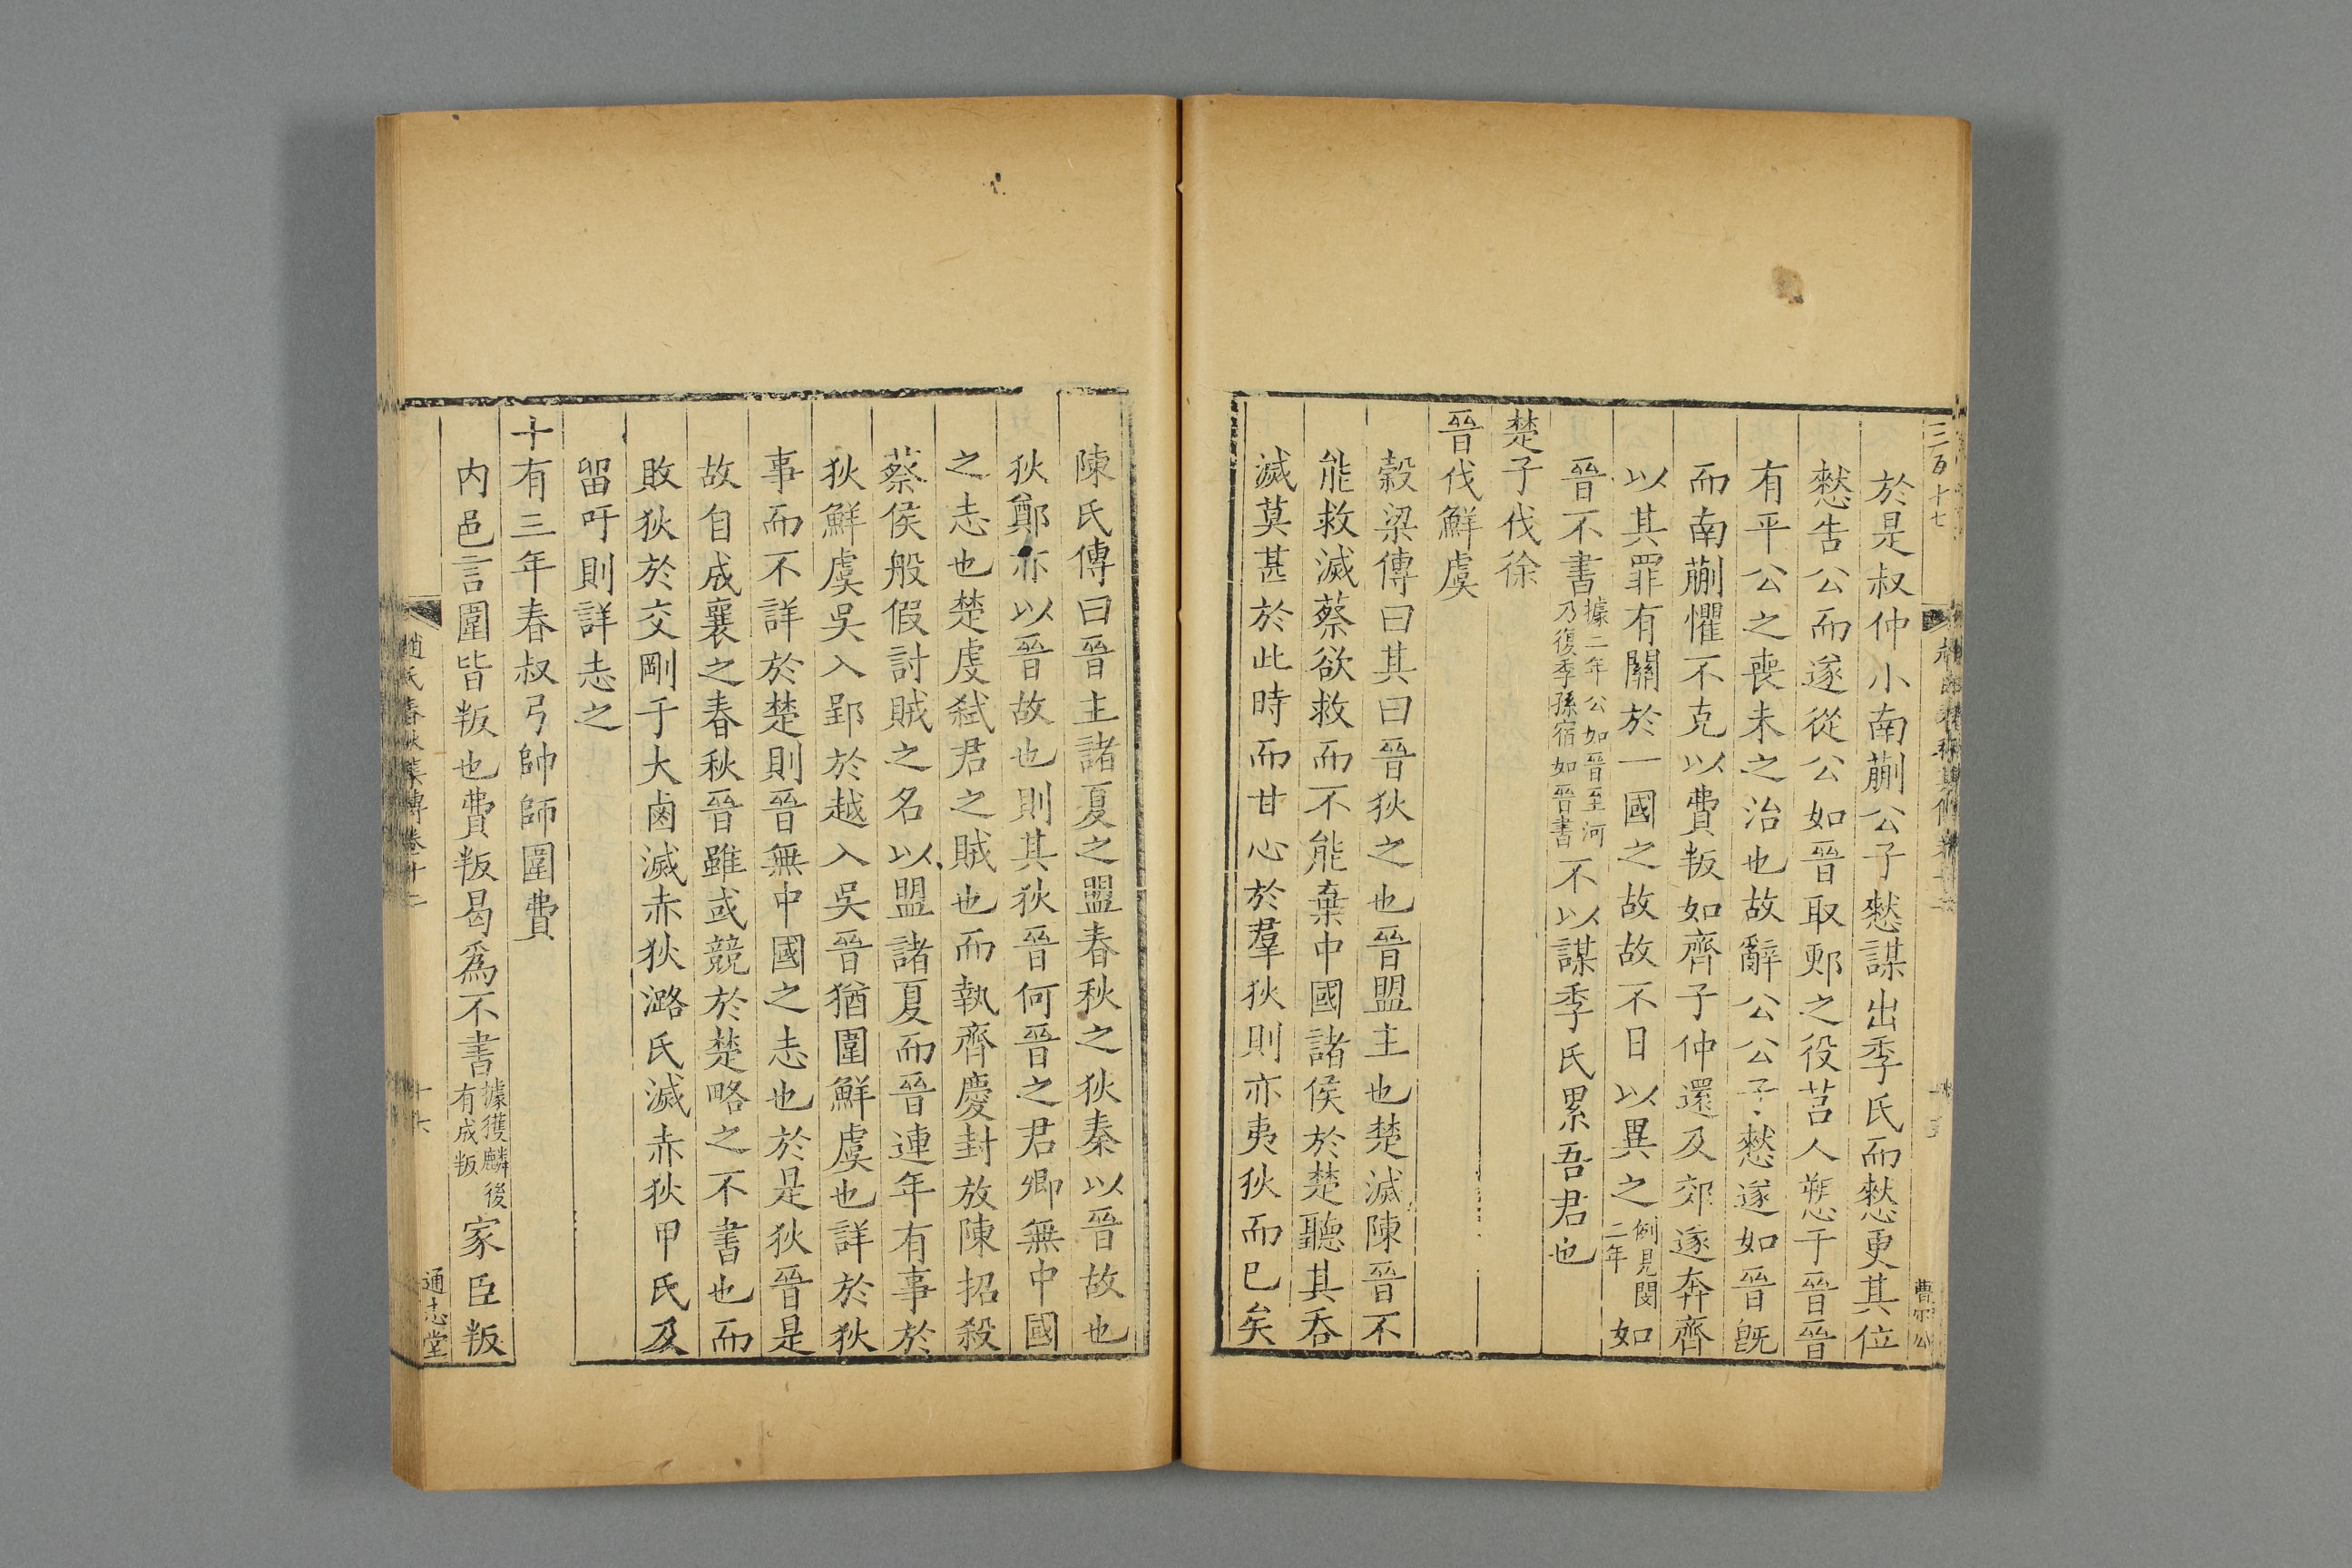 三百十七
曹宗公
於是叔仲小南蒯公子憖謀出季氏而憖更其位
憖告公而遂從公如晉取郠之役莒人愬于晉晉
有平公之喪未之治也故辭公公子憖遂如晉旣
而南蒯懼不克以費叛如齊子仲還及郊遂奔齊
以其罪有關於一國之故故不日以異之例見閔二年如
晉不書據二年公如晉至河乃復季孫宿如晉書不以謀季氏累吾君也
楚子伐徐
晉伐鮮虞
穀梁傳曰其曰晉狄之也晉盟主也楚滅陳晉不
能救滅蔡欲救而不能棄中國諸侯於楚聽其吞
滅莫甚於此時而甘心於羣狄則亦夷狄而巳矣
陳氏傳曰晉主諸夏之盟春秋之狄秦以晉故也
狄鄭亦以晉故也則其狄晉何晉之君卿無中國
之志也楚虔弒君之賊也而執齊慶封放陳招殺
蔡侯般假討賊之名以盟諸夏而晉連年有事於
狄鮮虞吳入郢於越入吳晉猶圍鮮虞也詳於狄
事而不詳於楚則晉無中國之志也於是狄晉是
故自成襄之春秋晉雖或競於楚略之不書也而
敗狄於交剛于大鹵滅赤狄潞氏滅赤狄甲氏及
留吁則詳志之
十有三年春叔弓帥師圍費
内邑言圍皆叛也費叛曷爲不書據獲麟後有成叛家臣叛
趙氏春秋集傳卷十二
十六
通志堂